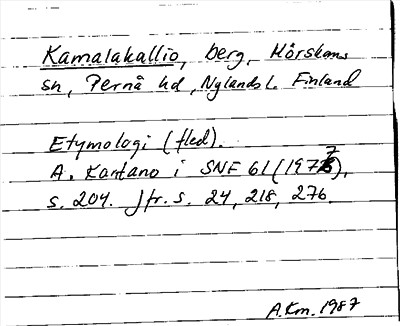 Kamalakallio, berg, Mörskoms
sn, Pernå hd, Nylands l. Finland
Etymologi (fled).
A. Kartano i SNF 61 (1977),
s. 204. Jfr. s. 24, 218, 276.
A.Km. 1987